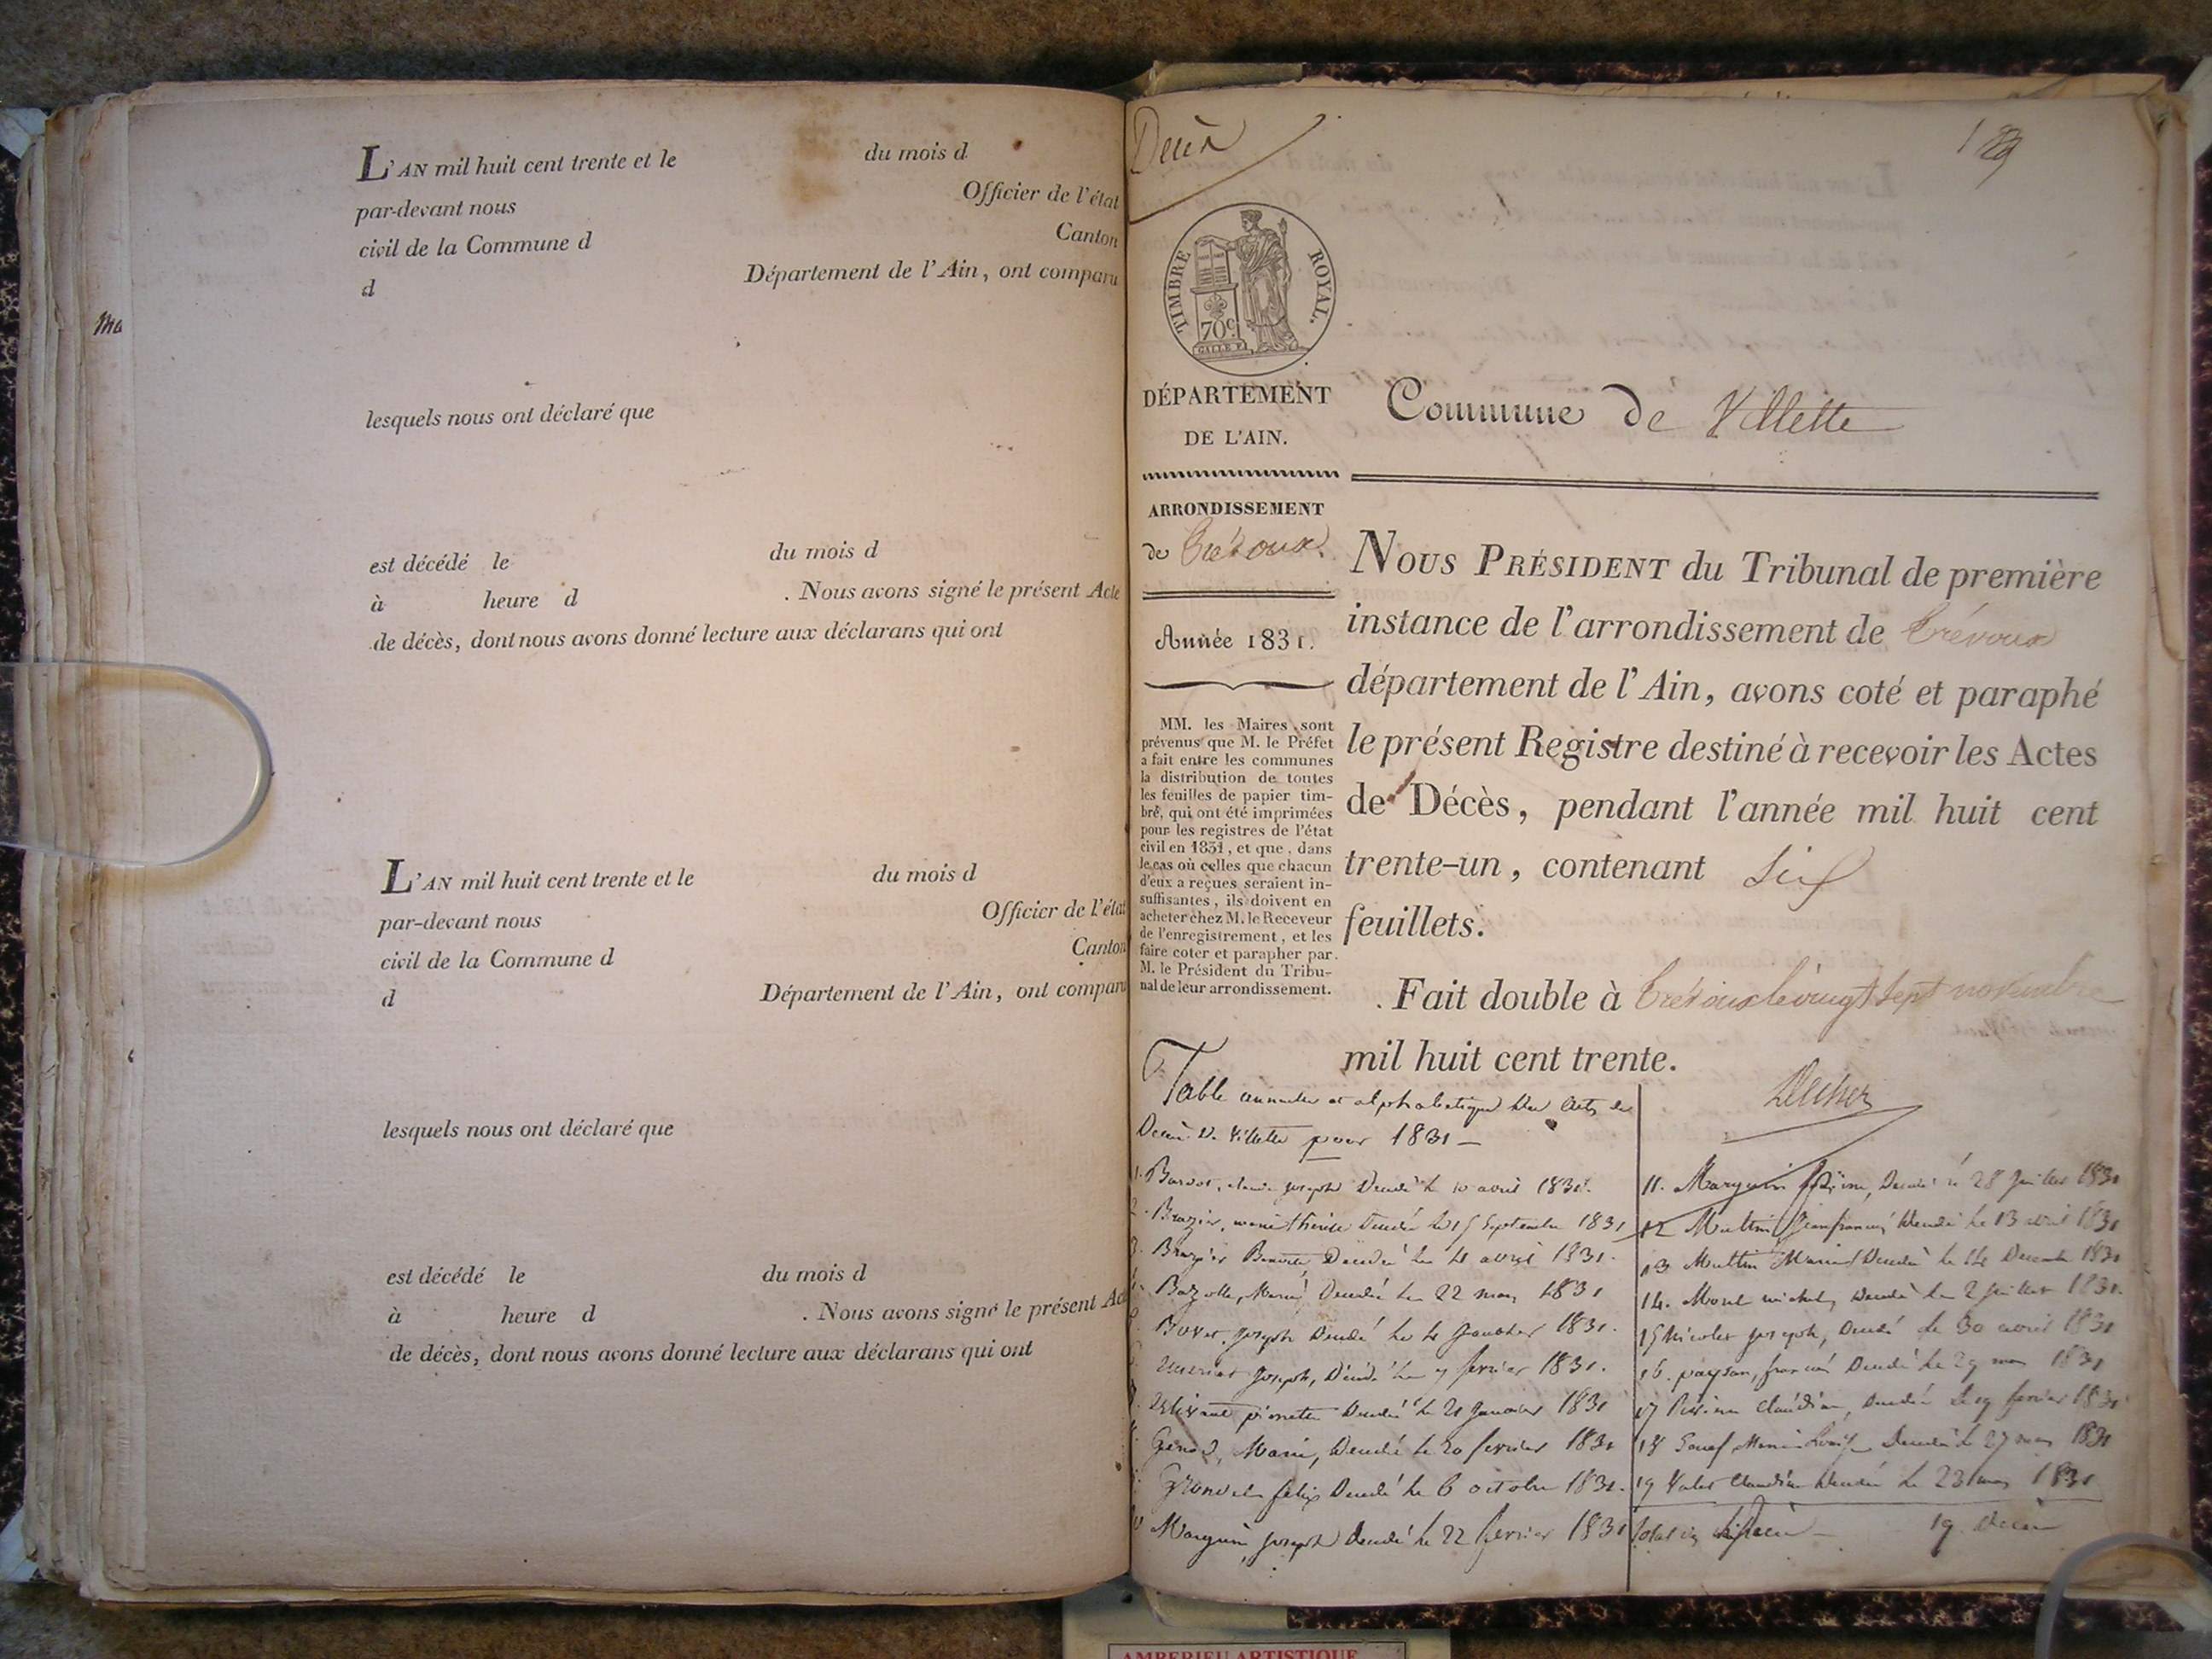 L'AN mil huit cent trente et le du mois d
par-devant nous Officier de l'état
civil de la Commune d Canton
d Département de l'Ain, ont comparu
lesquels nous ont déclaré que
est décédé le du mois d
à heure d . Nous avons signé le présent Acte
de décès, dont nous avons donné lecture aux déclarans qui ont
L'AN mil huit cent trente et le du mois d
par-devant nous Officier de l'état
civil de la Commune d Canton
d Département de l'Ain, ont comparu
lesquels nous ont déclaré que
est décédé le du mois d
à heure d . Nous avons signé le présent Act
de décès, dont nous avons donné lecture aux déclarans qui ont
Ma
Décès
TIMBRE ROYAL.
70c
GALLE F.
DÉPARTEMENT
DE L'AIN.
ARRONDISSEMENT
de Trévoux.
Année 1831.
MM. les Maires sont
prévenus que M. le Préfet
a fait entre les communes
la distribution de toutes
les feuilles de papier tim-
bré, qui ont été imprimées
pour les registres de l'état
civil en 1831, et que, dans
le cas où celles que chacun
d'eux a reçues seraient in-
suffisantes, ils doivent en
acheter chez M. le Receveur
de l'enregistrement, et les
faire coter et parapher par
M. le Président du Tribu-
nal de leur arrondissement.
Commune de Villette
NOUS PRÉSIDENT du Tribunal de première
instance de l'arrondissement de Trévoux
département de l'Ain, avons coté et paraphé
le présent Registre destiné à recevoir les Actes
de Décès, pendant l'année mil huit cent
trente-un, contenant Six
feuillets.
Fait double à Trévoux le vingt sept novembre
mil huit cent trente.
Table annuelle et alphabétique des actes de
Décès de Villette pour 1831 —
1. claude joseph Décédé le 10 avril 1831.
2. Brazier, marie thérèse Décédée le 15 Septembre 1831
3. Brazier Décédé le 4 avril 1831.
Marie, Décédée le 22 mars 1831
joseph Décédé le 4 Janvier 1831.
Joseph, Décédé le 7 février 1831.
pierrette Décédée le 21 Janvier 1831
Marie, Décédée le 20 février 1831
felix Décédé le 6 octobre 1831.
Marguin joseph Décédé le 22 février 1831
11. Marguin Décédé le 28 Juillet 1831
12 Muttin Jean françois Décédé le 13 avril 1831
13 Muttin Marie Décédée le Décembre 1831
14. Morel michel, Décédé le 2 Juillet 1831.
15 Nicolet joseph, Décédé le 30 avril 1831
16. paysan, françois Décédé le 29 mars 1831
17 Claudine, Décédée le 19 février 1831
18 Marie Louise Décédée le 27 mars 1831
19 Claudine Décédée le 23 mars 1831
Total 19 Décès
AMBERIEU ARTISTIQUE